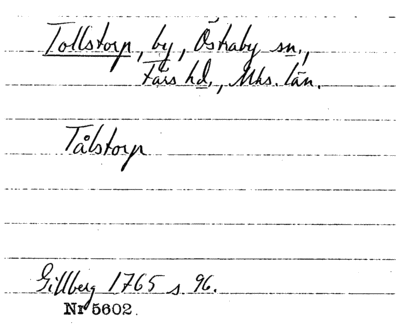 Tollstorp, by, Östraby sn.,
Färs hd., Mhs. län.
Tålstorp
Gillberg 1765 s. 96.
Nr 5602.